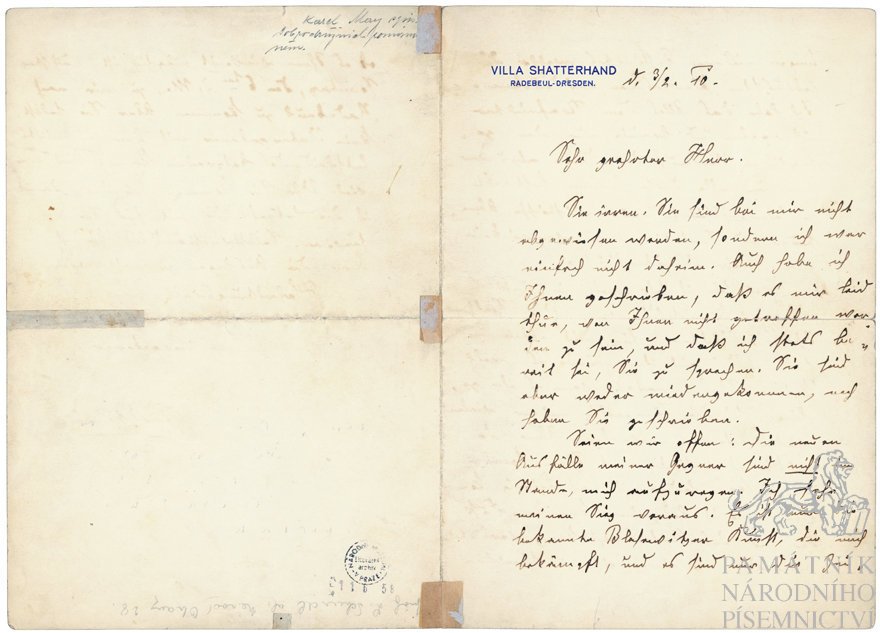 Karel May
VILLA SHATTERHAND
RADEBEUL-DRESDEN.
d. 3/2. 10.
Sehr geehrter Herr.
Sie irren. Sie sind bei mir nicht
abgewiesen worden, sondern ich war
einfach nicht daheim. Auch habe ich
Ihnen geschrieben, daß es mir leid
thue, von Ihnen nicht getroffen wor
den zu sein, und daß ich stets be
reit sei, Sie zu sprechen. Sie sind
aber weder wiedergekommen, noch
haben Sie geschrieben.
Seien wir offen: Die neuen
Ausfälle meiner Gegner sind nicht im
Stande, mich aufzuregen. Ich sehe
meinen Sieg voraus. Es ist nur
bekannte Blasewitzer die mich
bekämpft, und es sind nur die
PAMÁTNÍK
NÁRODNÍHO
PÍSEMNICTVÍ